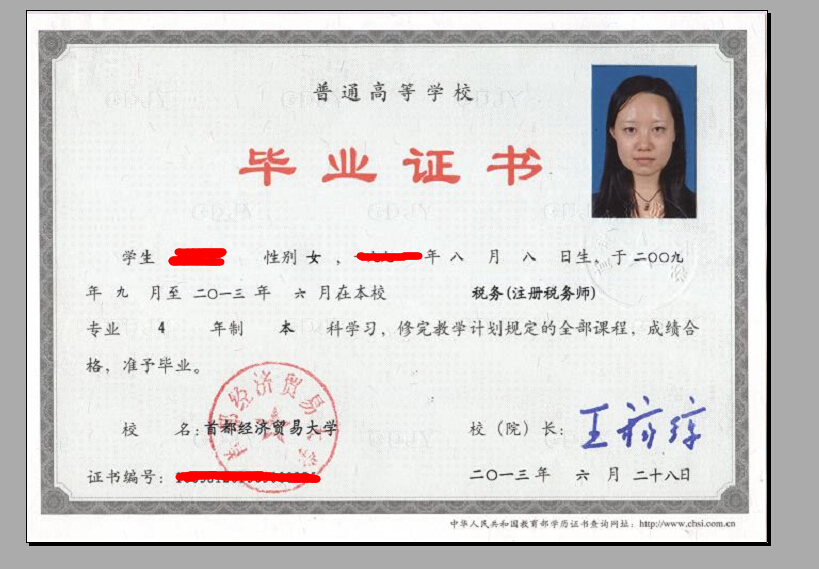 普通高等学校
毕业证书
学生 性别 女 ， 年 八 月 八 日生，于 二〇〇九
年 九 月至 二〇一三 年 六 月在本校 税务(注册税务师)
专业 4 年制 本 科学习，修完教学计划规定的全部课程，成绩合
格，准予毕业。
校 名：首都经济贸易大学 校（院）长：
证书编号： 二〇一三 年 六 月 二十八日
中华人民共和国教育部学历证书查询网址：http://www.chsi.com.cn